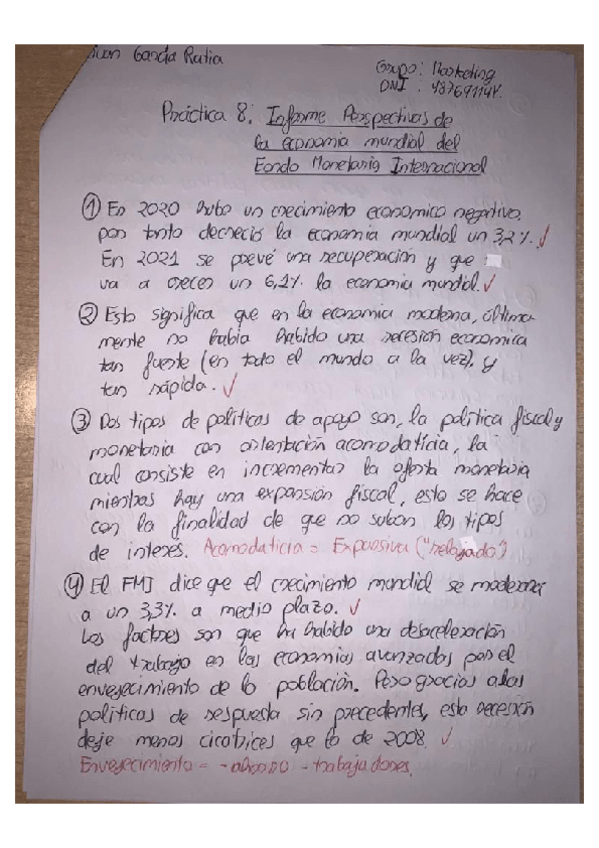 Juan García Rutia
Grupo: Marketing
DNI: 48769114Y.
Práctica 8: Informe Perspectivas de
la economía mundial del
Fondo Monetario Internacional
① En 2020 hubo un crecimiento economico negativo,
por tanto decreció la economia mundial un 3,2%. ✓
En 2021 se prevé una recuperacion y que
va a crecer un 6,1%. la economia mundial. ✓
② Esto significa que en la economia moderna, última-
mente no habia habido una recesión economica
tan fuerte (en todo el mundo a la vez), y
tan rápida. ✓
③ Dos tipos de politicas de apoyo son, la politica fiscal y
monetaria con orientación acomodaticia, la
cual consiste en incrementar la oferta monetaria
mientras hay una expansión fiscal, esto se hace
con la finalidad de que no suban los tipos
de interes. Acomodaticia = Expansiva ("relajado")
④ El FMI dice que el crecimiento mundial se moderará
a un 3,3%. a medio plazo. ✓
Los factores son que ha habido una desaceleración
del trabajo en las economias avanzadas por el
envejecimiento de la población. Pero gracias a las
politicas de respuesta sin precedentes, esta recesión
deje menos cicatrices que la de 2008. ✓
Envejecimiento = - ahorro - trabajadores.